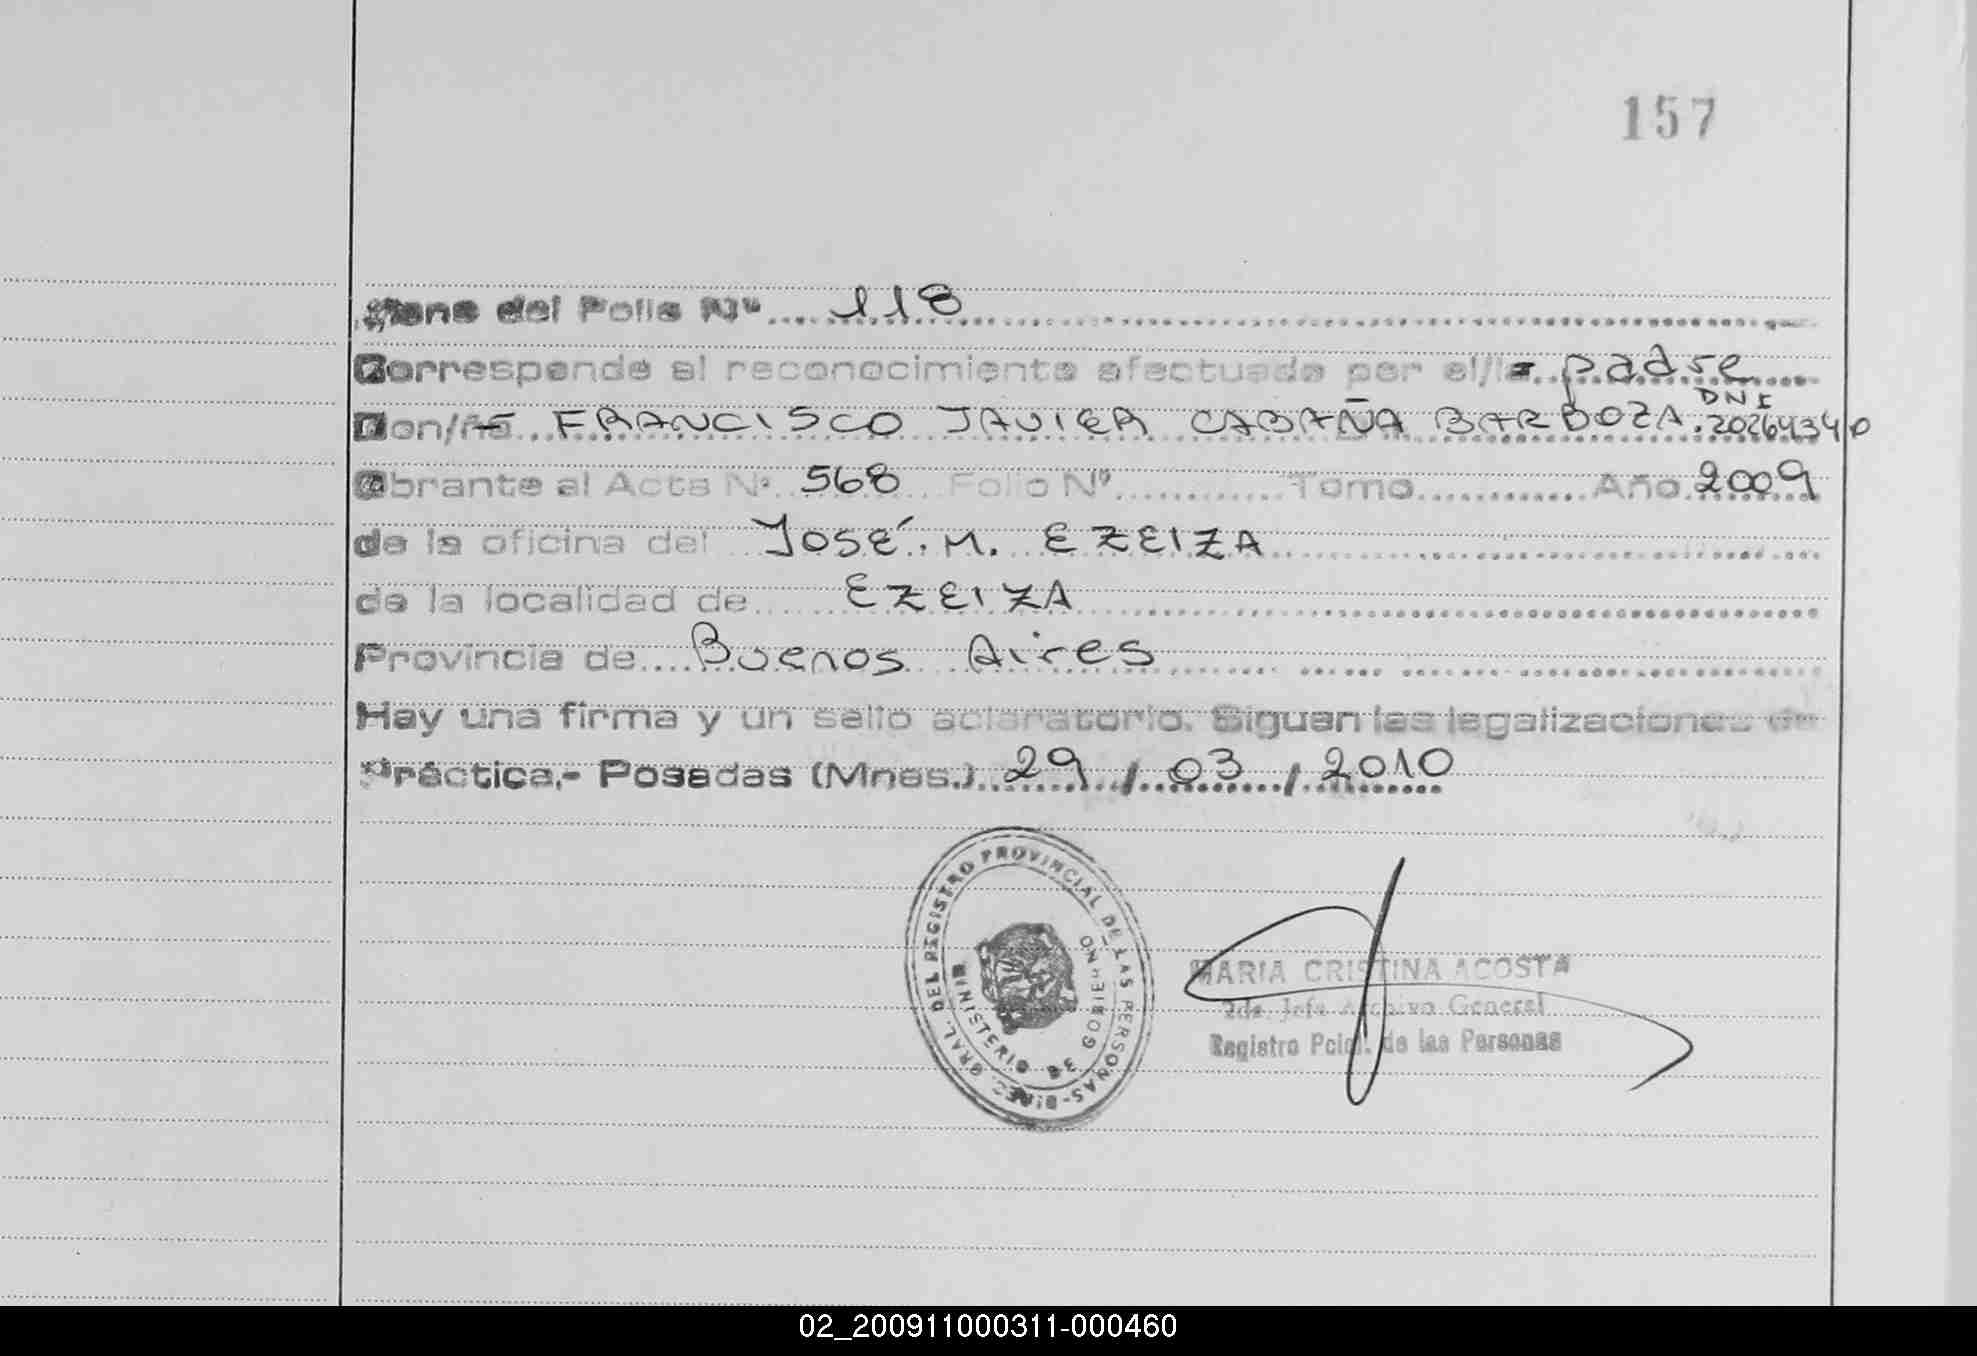 157
Viene del Folio Nº 118
Corresponde al reconocimiento efectuado por el/la padre
Don/ña FRANCISCO JAVIER CABAÑA BARBOZA. DNI 20264340
Obrante al Acta Nº 568 Folio Nº Tomo Año 2009
de la oficina del José. M. EZEIZA
de la localidad de EZEIZA
Provincia de Buenos Aires
Hay una firma y un sello aclaratorio. Siguen las legalizaciones de
Práctica.- Posadas (Mnes.) 29 / 03 / 2010
DIREC. GRAL. DEL REGISTRO PROVINCIAL DE LAS PERSONAS-
MINISTERIO DE GOBIERNO
MARIA CRISTINA ACOSTA
2da. Jefe Archivo General
Registro Pcial. de las Personas
02_200911000311-000460